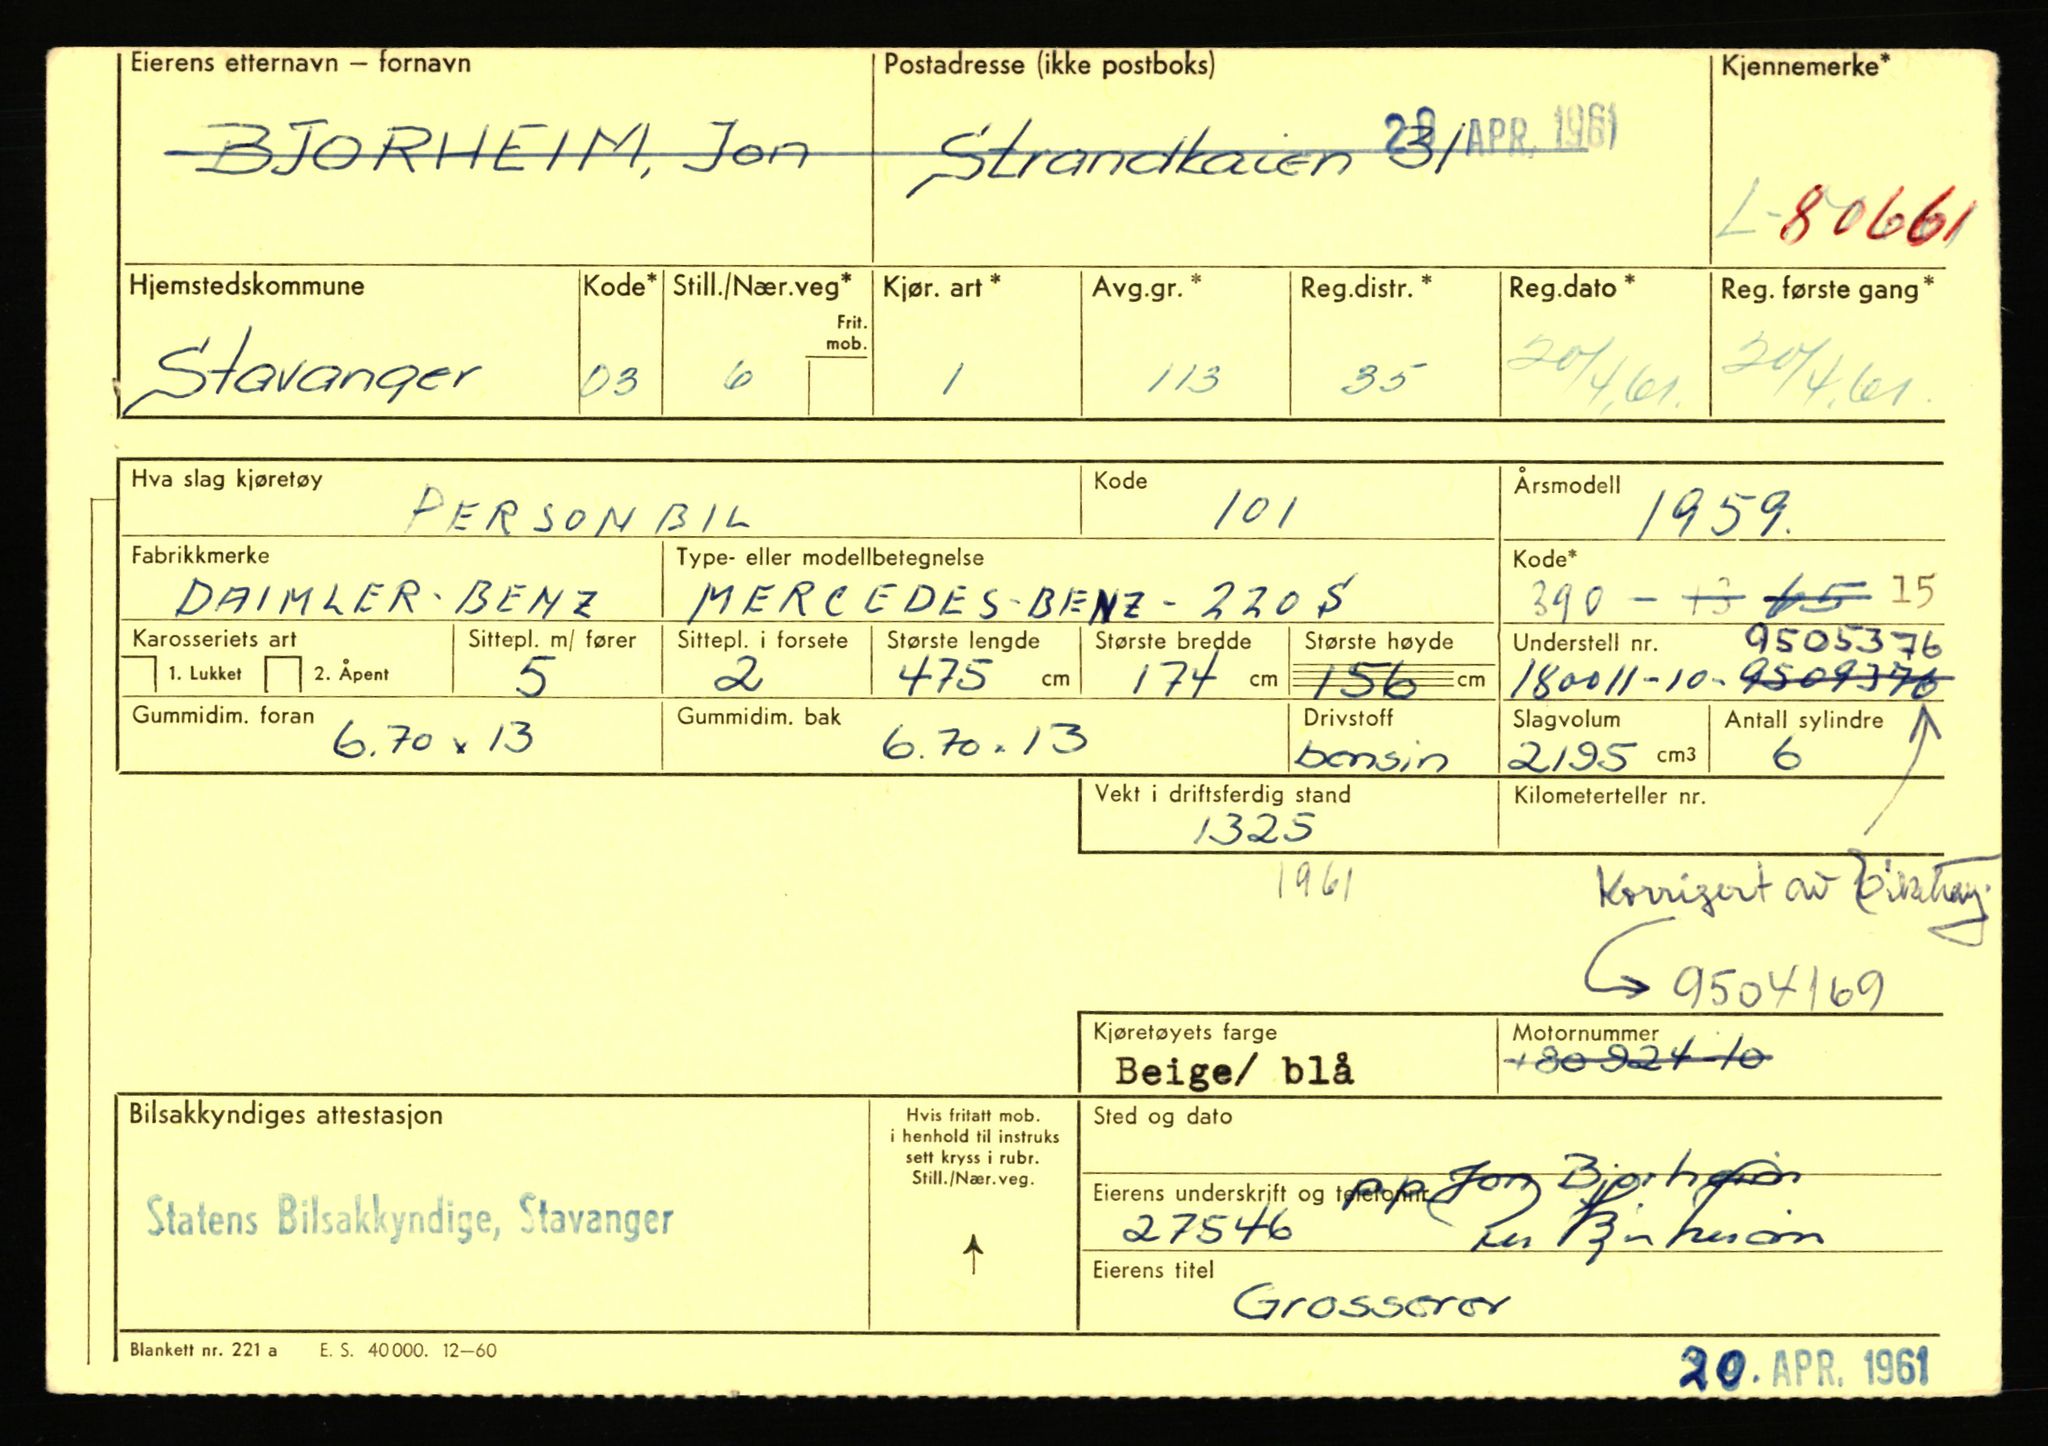 Eierens etternavn – fornavn
Postadresse (ikke postboks)
Kjennemerke*
BJORHEIM, Jon
Strandkaien 31
20 APR. 1961
L-80661
Hjemstedskommune
Kode*
Still./Nær.veg*
Frit. mob.
Kjør. art*
Avg.gr.*
Reg.distr.*
Reg.dato*
Reg. første gang*
Stavanger
03
6
1
113
35
20/4.61.
20/4.61.
Hva slag kjøretøy
PERSONBIL
Kode
101
Årsmodell
1959.
Fabrikkmerke
DAIMLER-BENZ
Type- eller modellbetegnelse
MERCEDES-BENZ-220S
Kode*
390 – 13 65 15
Karosseriets art
1. Lukket
2. Åpent
Sittepl. m/ fører
5
Sittepl. i forsete
2
Største lengde
475 cm
Største bredde
174 cm
Største høyde
156 cm
Understell nr.
9505376
180011-10-9509376
Gummidim. foran
6.70 x 13
Gummidim. bak
6.70 x 13
Drivstoff
bensin
Slagvolum
2195 cm3
Antall sylindre
6
Vekt i driftsferdig stand
1325
Kilometerteller nr.
1961
Korrigert av
9504169
Kjøretøyets farge
Beige/ blå
Motornummer
180924-10
Bilsakkyndiges attestasjon
Statens Bilsakkyndige, Stavanger
Hvis fritatt mob.
i henhold til instruks
sett kryss i rubr.
Still./Nær.veg.
Sted og dato
Eierens underskrift og telefonnr.
pp Jon Bjorheim
27546
Eierens titel
Grosserer
Blankett nr. 221 a E. S. 40 000. 12–60
20. APR. 1961